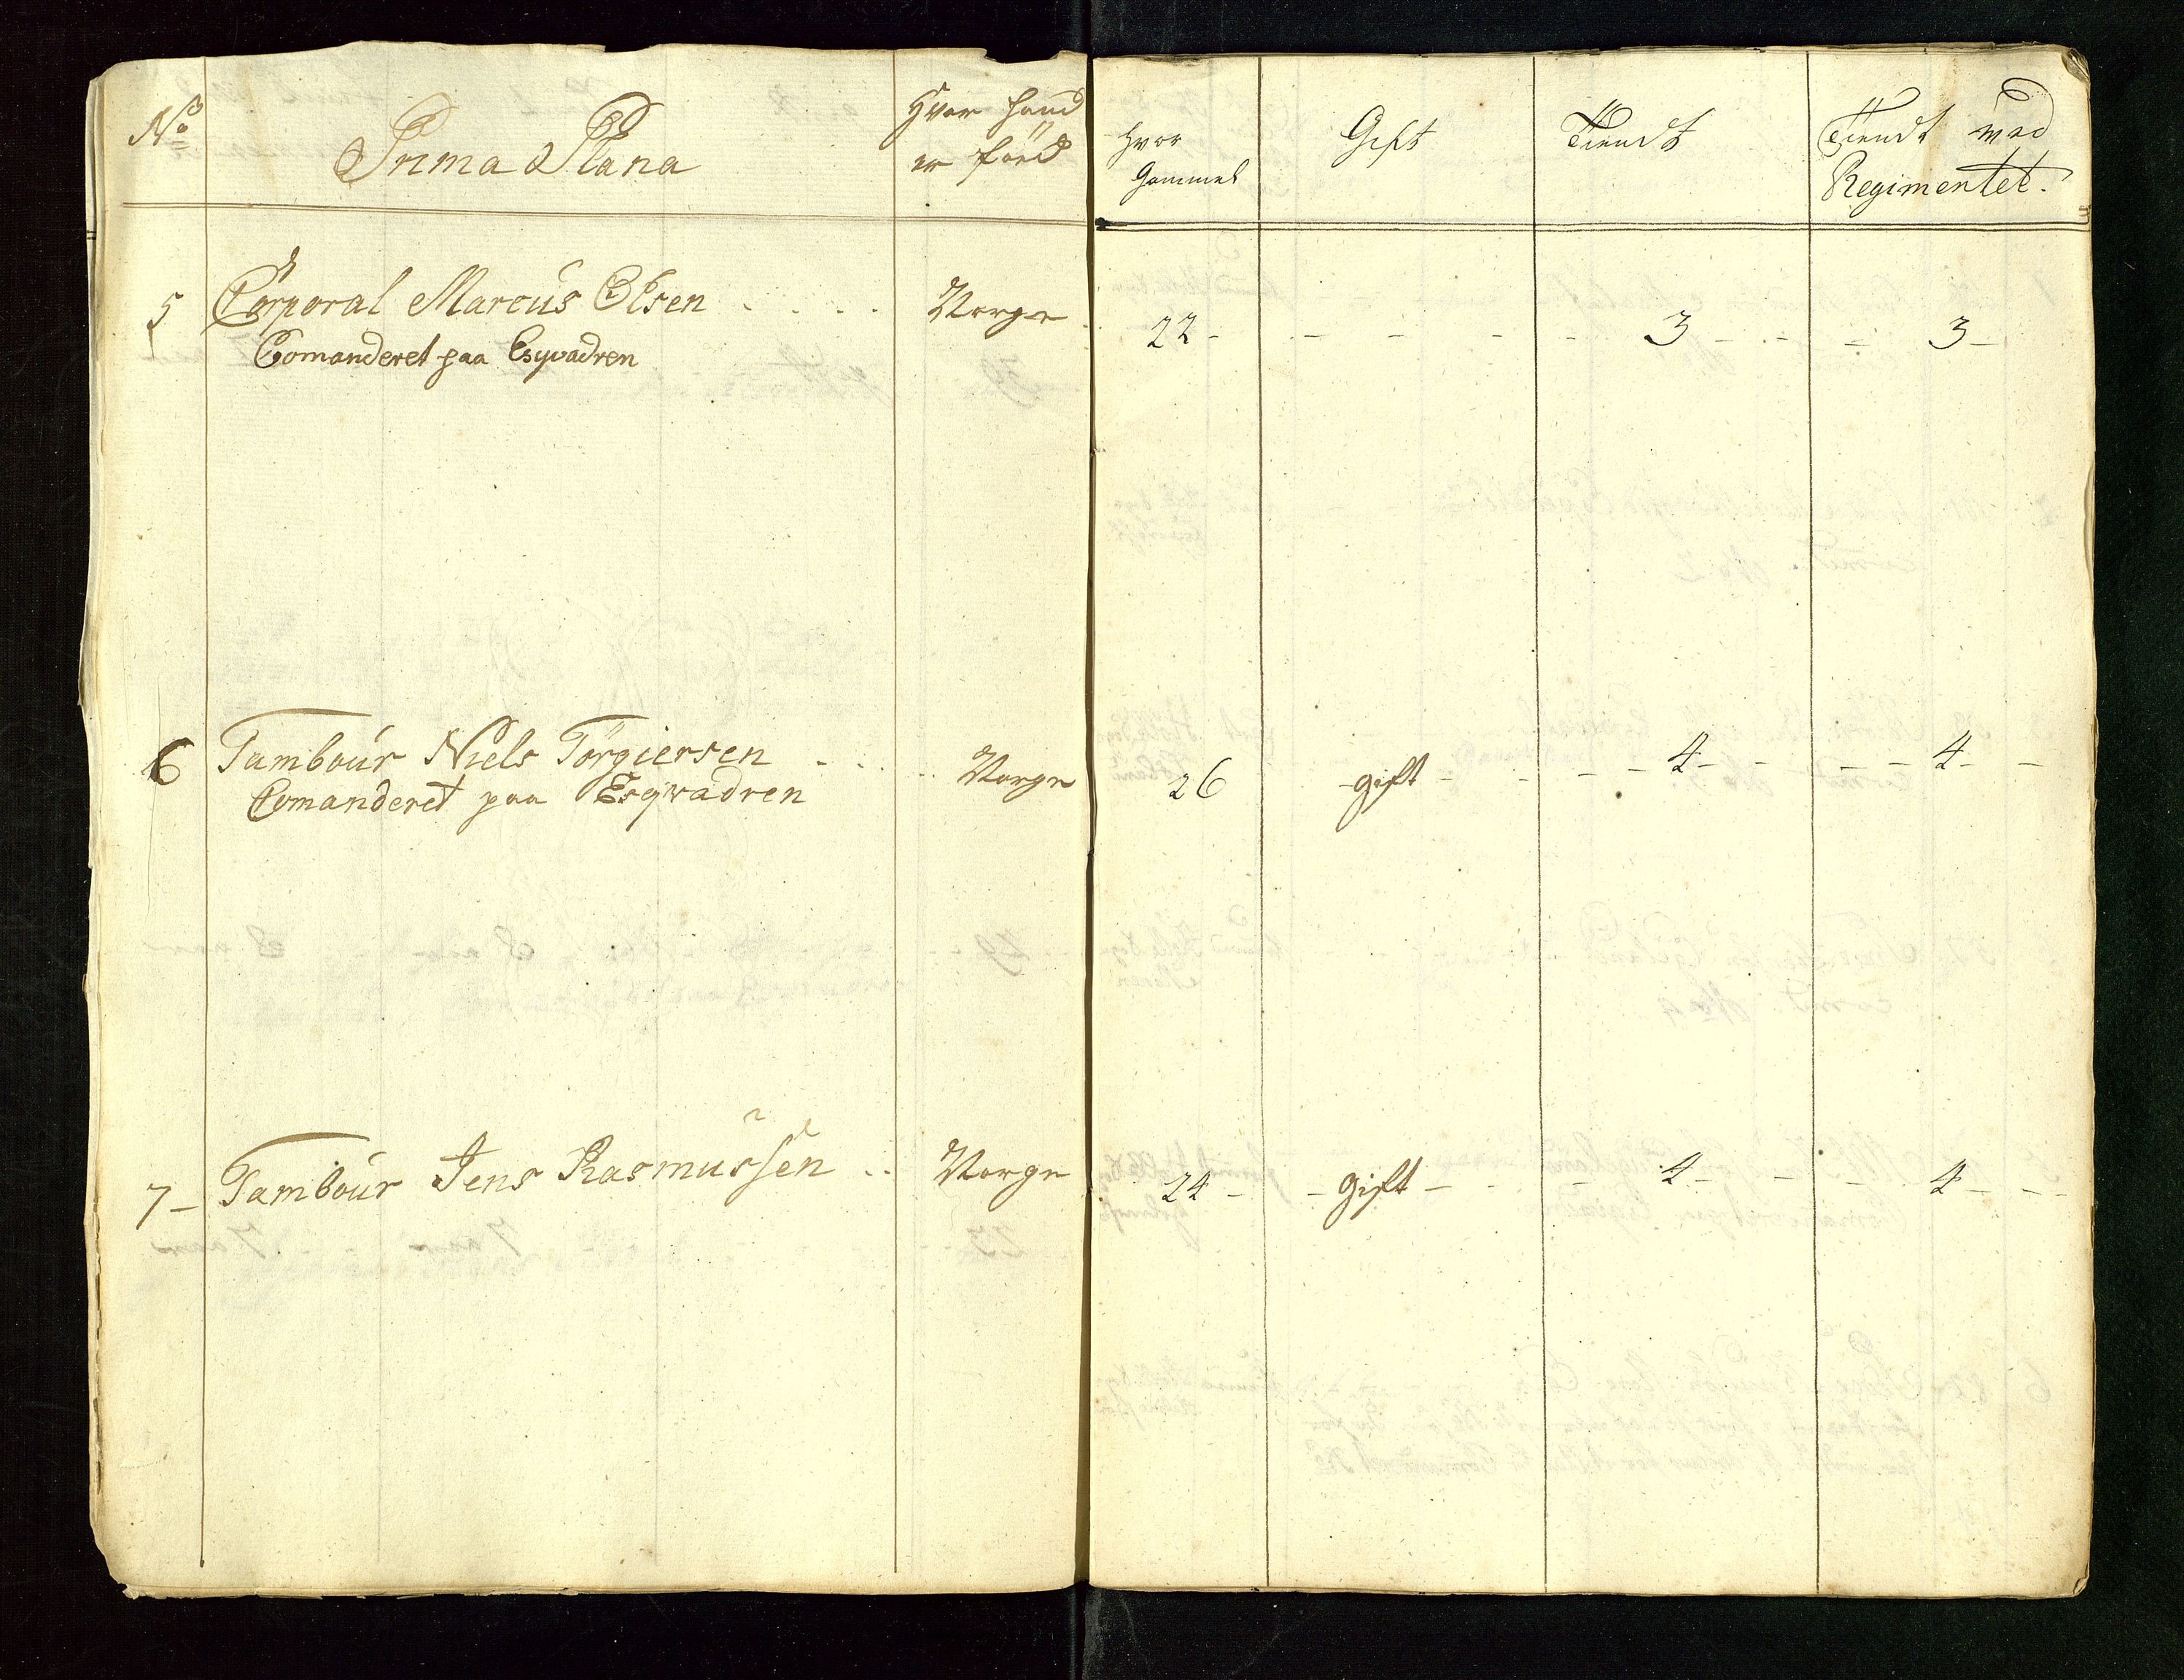 No
Prima Plana
Hvor hand
er föed
Hvor
Gammel
Gift
Tiendt
Tiendt ved
Regimentet.
5 Corporal Marcus Olsen - - - - Norge 22 - - - - - - 3 - - - 3 -
Comanderet paa Esqvadren
6 Tambour Niels Törgiersen - - - - Norge 26 - gift - - - - 4 - - - - 4 - -
Comanderet paa Esqvadren
7 - Tambour Jens Rasmussen - - Norge 24 - - gift - - - 4 - - - 4 - - -